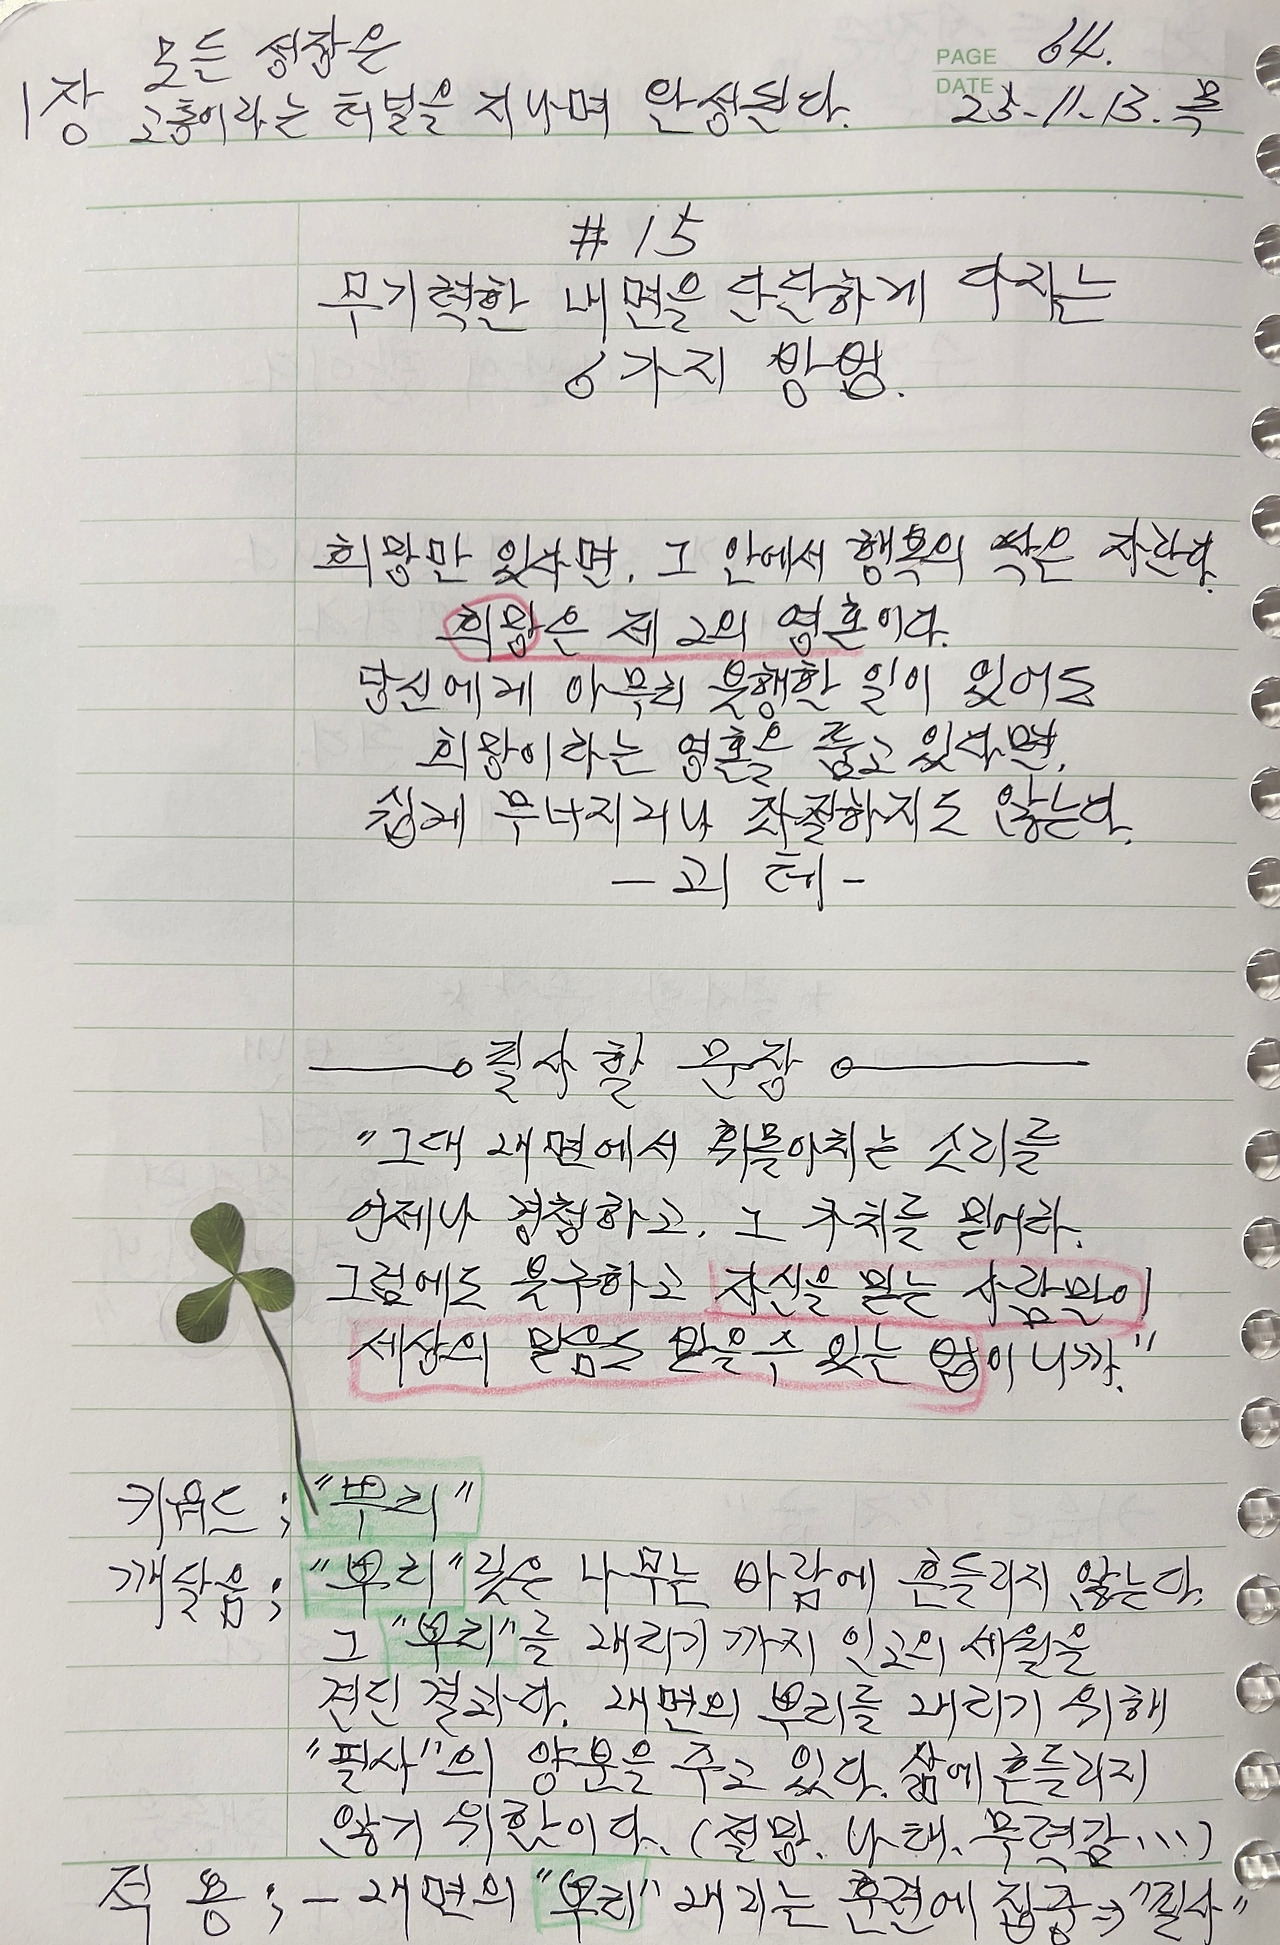 모든 성장은
1장 고통이라는 터널을 지나며 완성된다.
PAGE 64.
DATE 25-11-13. 목
#15
무기력한 내면을 단단하게 다지는
6가지 방법.
희망만 있다면, 그 안에서 행복의 싹은 자란다.
희망은 제 2의 영혼이다.
당신에게 아무리 불행한 일이 있어도
희망이라는 영혼을 품고 있다면,
쉽게 무너지거나 좌절하지도 않는다.
- 괴테 -
필사할 문장
"그대 내면에서 휘몰아치는 소리를
언제나 경청하고, 그 가치를 믿어라.
그럼에도 불구하고 자신을 믿는 사람만이
세상의 믿음도 받을수 있는 법이니까."
키워드 ; "뿌리"
깨달음 ; "뿌리"깊은 나무는 바람에 흔들리지 않는다.
그 "뿌리"를 내리기까지 인고의 세월을
견딘 결과다. 내면의 뿌리를 내리기 위해
"필사"의 양분을 주고 있다. 삶에 흔들리지
않기 위함이다. (절망, 나태, 무력감...)
적용 ; - 내면의 "뿌리" 내리는 훈련에 집중→"필사"